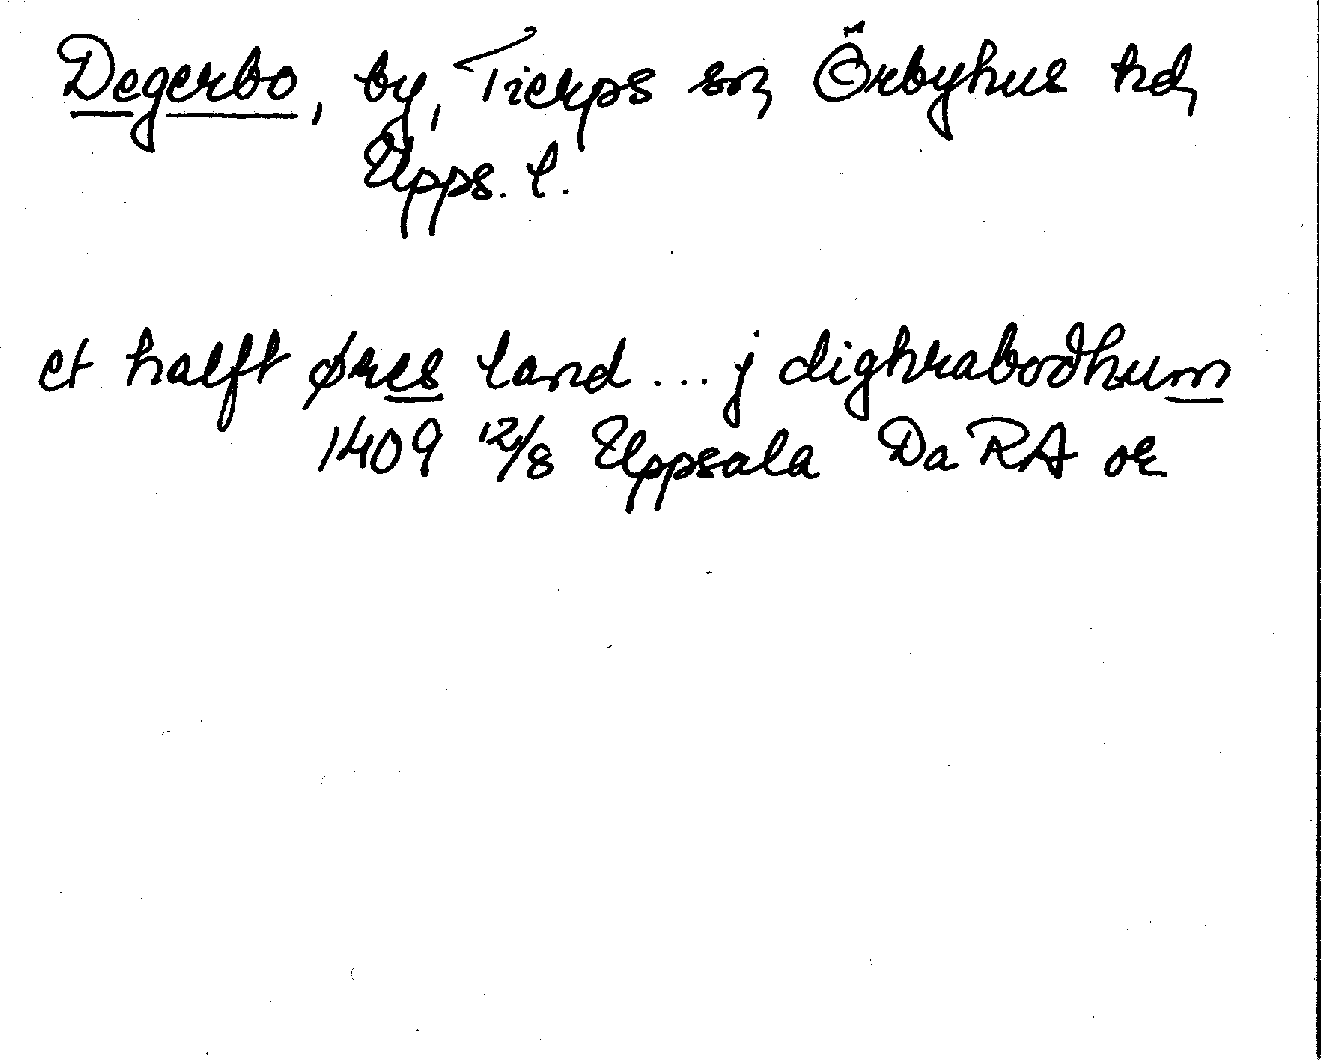 Degerbo, by, Tierps sn, Örbyhus hd,
Upps. l.
et halft øres land ... j dighrabodhum
1409 12/8 Uppsala DaRA or